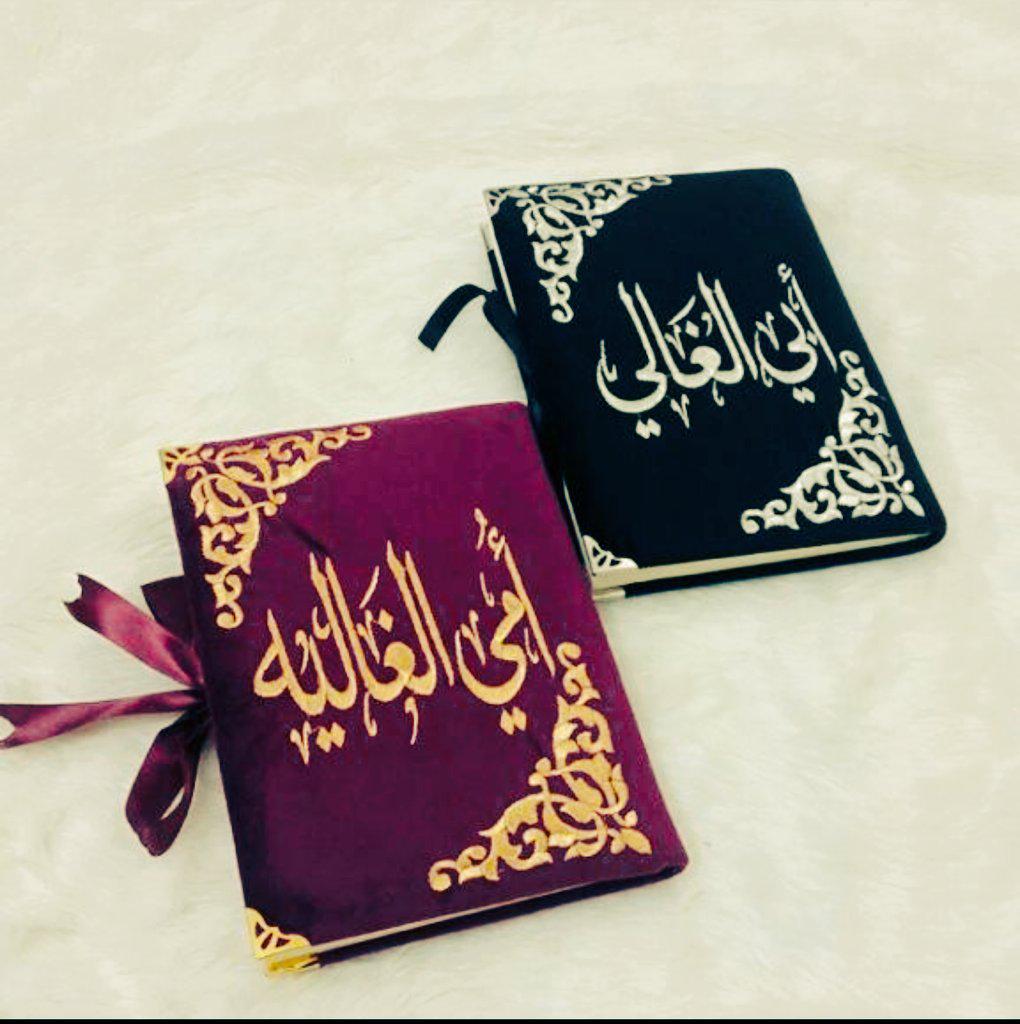 أبي الغَالي
أُمي الغَاليه